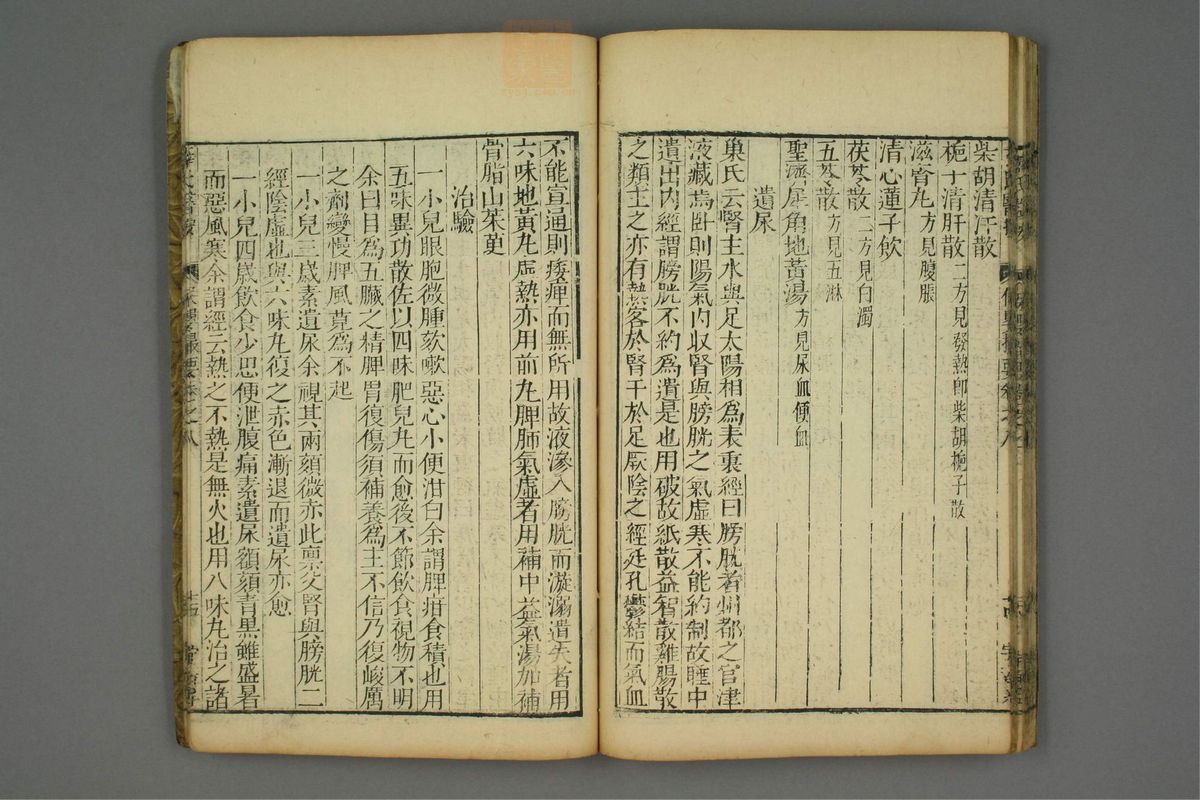 柴胡清肝散
梔子清肝散二方見發熱即柴胡梔子散
滋腎丸方見腹脹
清心蓮子飲
茯苓散二方見白濁
五苓散方見五淋
聖濟犀角地黃湯方見尿血便血
遺尿
巢氏云腎主水與足太陽相爲表裏經曰膀胱者州都之官津
液藏焉卧則陽氣內收腎與膀胱之氣虛寒不能約制故睡中
遺出內經謂膀胱不約爲遺是也用破故紙散益智散雞腸散
之類主之亦有熱客於腎干於足厥陰之經廷孔鬱結而氣血
不能宣通則痿痺而無所用故液滲入膀胱而漩溺遺失者用
六味地黃丸虛熱亦用前丸脾肺氣虛者用補中益氣湯加補
骨脂山茱萸
治驗
一小兒眼胞微腫咳嗽惡心小便泔白余謂脾疳食積也用
五味異功散佐以四味肥兒丸而愈後不節飲食視物不明
余曰目爲五臟之精脾胃復傷須補養爲主不信乃復峻厲
之劑變慢脾風竟爲不起
一小兒三歲素遺尿余視其兩頦微赤此稟父腎與膀胱二
經陰虛也與六味丸復之赤色漸退而遺尿亦愈
一小兒四歲飲食少思便泄腹痛素遺尿額頦青黑雖盛暑
而惡風寒余謂經云熱之不熱是無火也用八味丸治之諸